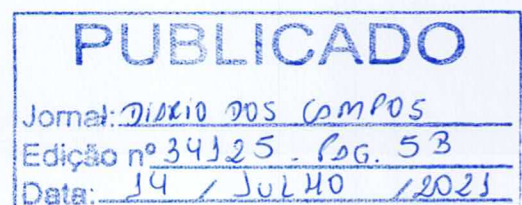 PUBLICADO
Jornal: DIÁRIO DOS CAMPOS
Edição nº 34125 - PÁG. 5B
Data: 14 / JULHO /2021